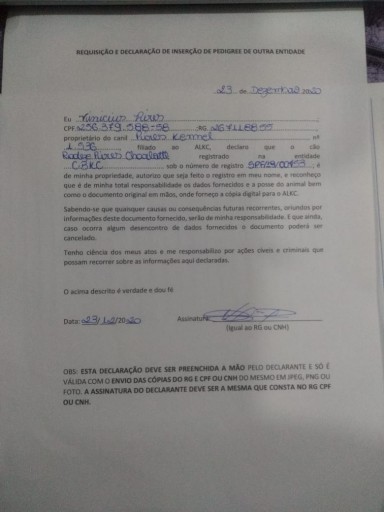 REQUISIÇÃO E DECLARAÇÃO DE INSERÇÃO DE PEDIGREE DE OUTRA ENTIDADE
23 de Dezembro 2020
Eu Vinicius Pires
CPF: 256.379.588-58 RG 267118855
proprietário do canil Pires Kennel nº
1.536 filiado ao ALKC, declaro que o cão
Pires Chocolatte registrado na entidade
CBKC sob o número de registro é
de minha propriedade, autorizo que seja feito o registro em meu nome, e reconheço
que é de minha total responsabilidade os dados fornecidos e a posse do animal bem
como o documento original em mãos, onde forneço a cópia digital para o ALKC.
Sabendo-se que quaisquer causas ou consequências futuras recorrentes, oriundos por
informações deste documento fornecido, serão de minha responsabilidade. E que ainda,
caso ocorra algum desencontro de dados fornecidos o documento poderá ser
cancelado.
Tenho ciência dos meus atos e me responsabilizo por ações cíveis e criminais que
possam recorrer sobre as informações aqui declaradas.
O acima descrito é verdade e dou fé
Data: 23/12/2020 Assinatura:
(Igual ao RG ou CNH)
OBS: ESTA DECLARAÇÃO DEVE SER PREENCHIDA A MÃO PELO DECLARANTE E SÓ É
VÁLIDA COM O ENVIO DAS CÓPIAS DO RG E CPF OU CNH DO MESMO EM JPEG, PNG OU
FOTO. A ASSINATURA DO DECLARANTE DEVE SER A MESMA QUE CONSTA NO RG CPF
OU CNH.